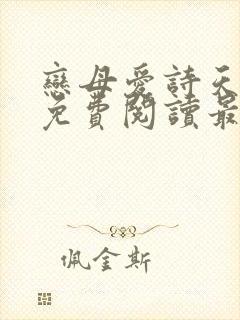 戀母愛詩天
免費閱讀最
佩金斯